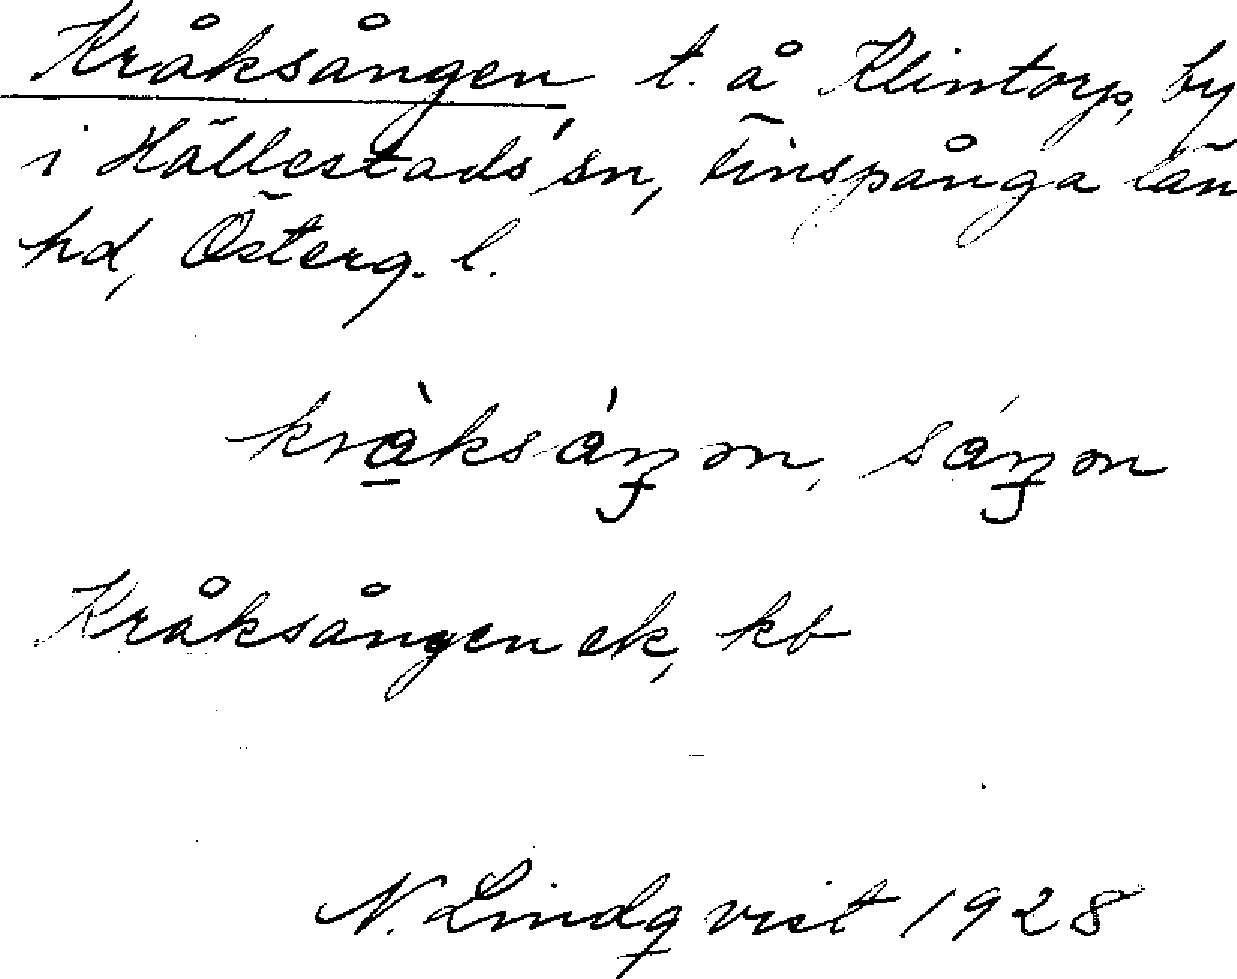 Kråksången, t. å Klintorp, by
i Hällestads sn, Finspånga län
hd, Österg. l.
kråksáŋən, sáŋən
Kråksången ek, kb
N. Lindqvist 1928